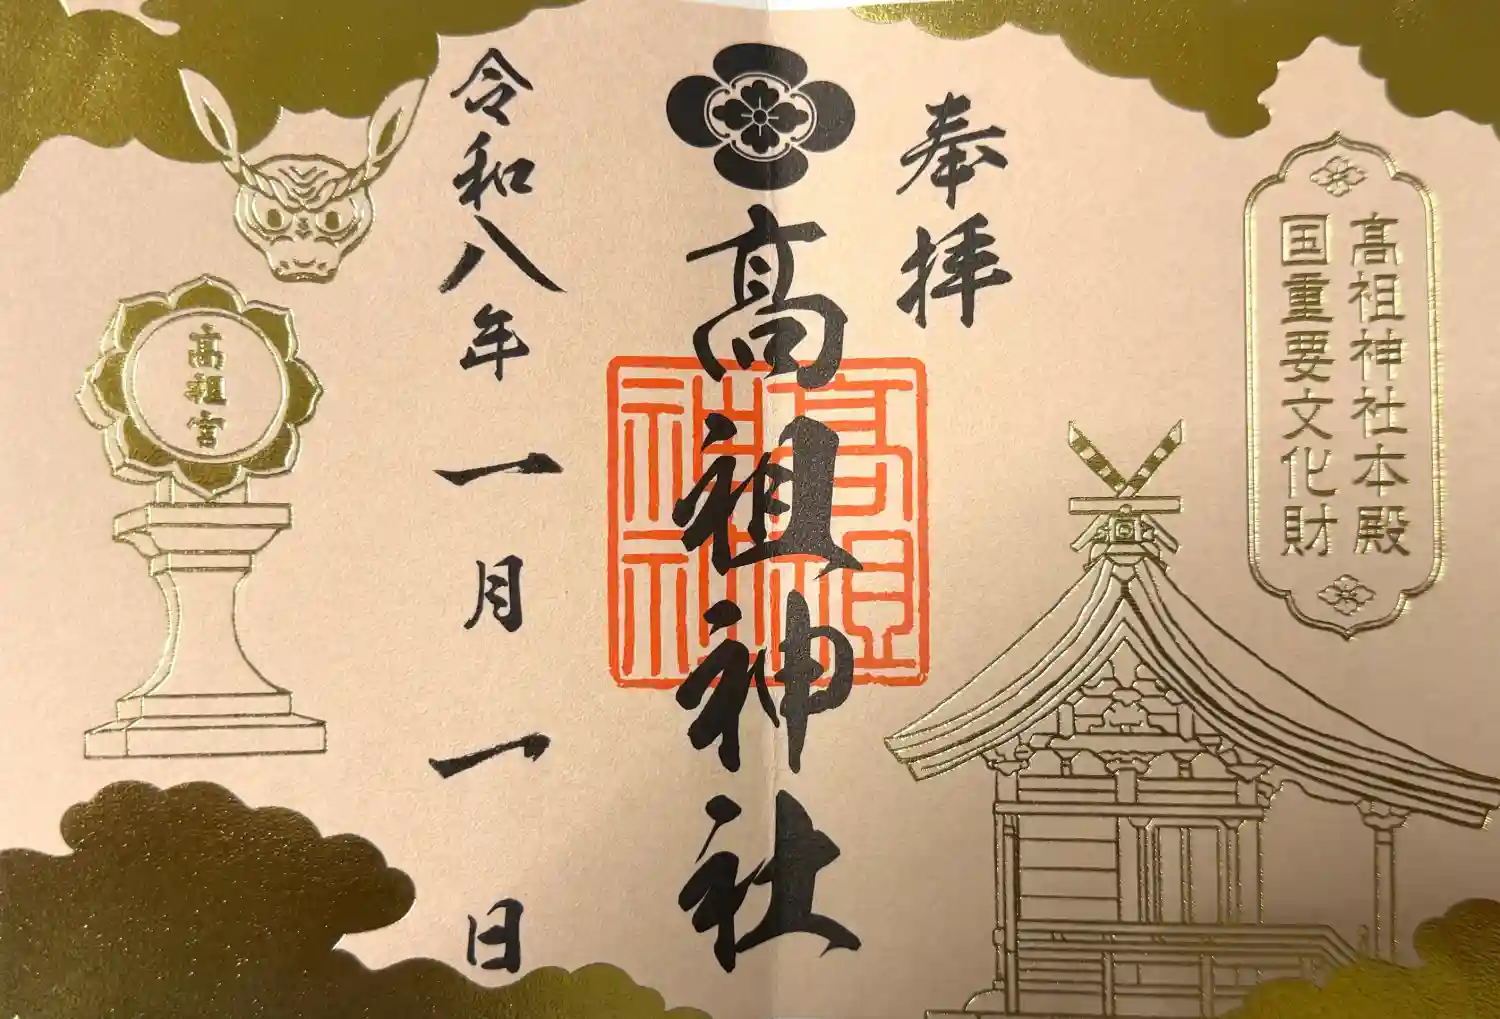 髙祖神社本殿
国重要文化財
奉拝
髙祖神社
髙祖神社
令和八年一月一日
髙祖宮